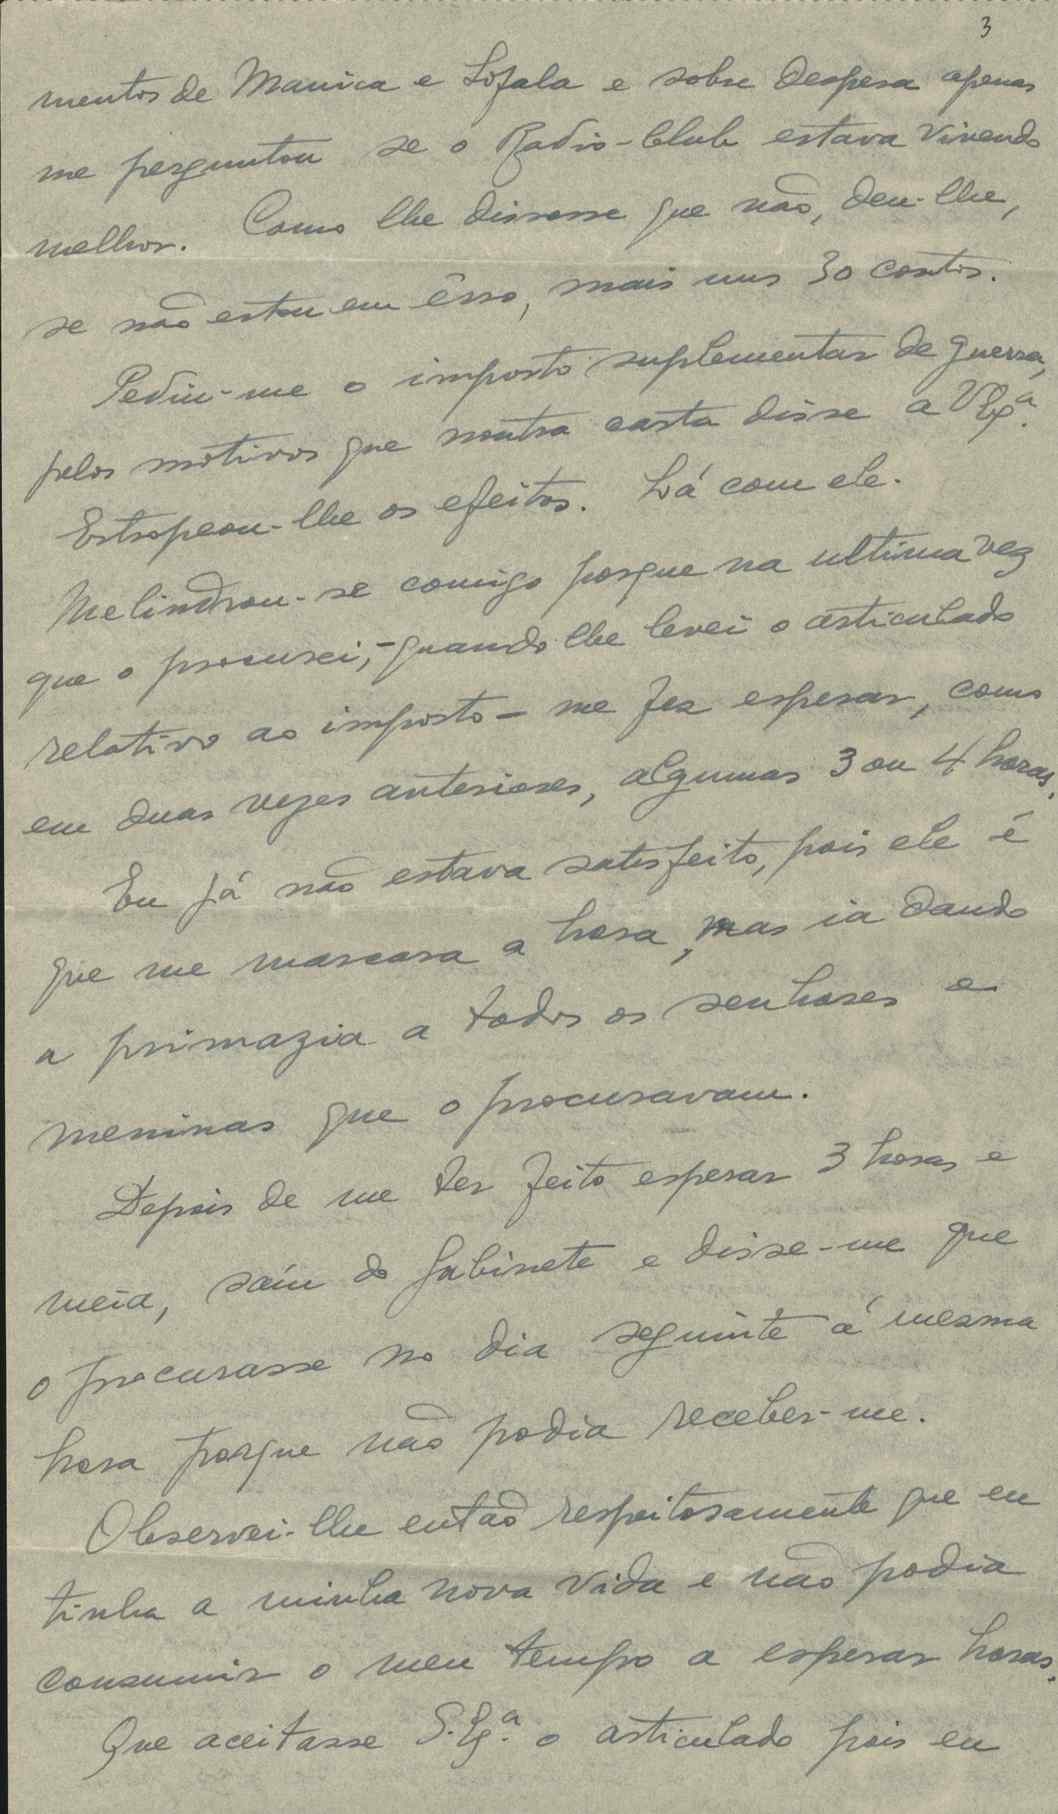 3
mentos de Manica e Sofala e sobre despesa apenas
me perguntou se o Radio-Club estava vivendo
melhor. Como lhe dissesse que não, deu-lhe,
se não estou em êrro, mais uns 30 contos.
Pediu-me o imposto suplementar de guerra,
pelos motivos que noutra carta disse a V Exª.
Estropeou-lhe os efeitos. Lá com ele.
Melindrou-se comigo porque na ultima vez
que o procurei, - quando lhe levei o articulado
relativo ao imposto - me fez esperar, como
em duas vezes anteriores, algumas 3 ou 4 horas.
Eu já não estava satisfeito, pois ele é
que me marcara a hora, mas ia dando
a primazia a todos os senhores e
meninas que o procuravam.
Depois de me ter feito esperar 3 horas e
meia, saíu do gabinete e disse-me que
o procurasse no dia seguinte á mesma
hora porque não podia receber-me.
Observei-lhe então respeitosamente que eu
tinha a minha nova vida e não podia
consumir o meu tempo a esperar horas.
Que aceitasse S. Exª. o articulado pois eu